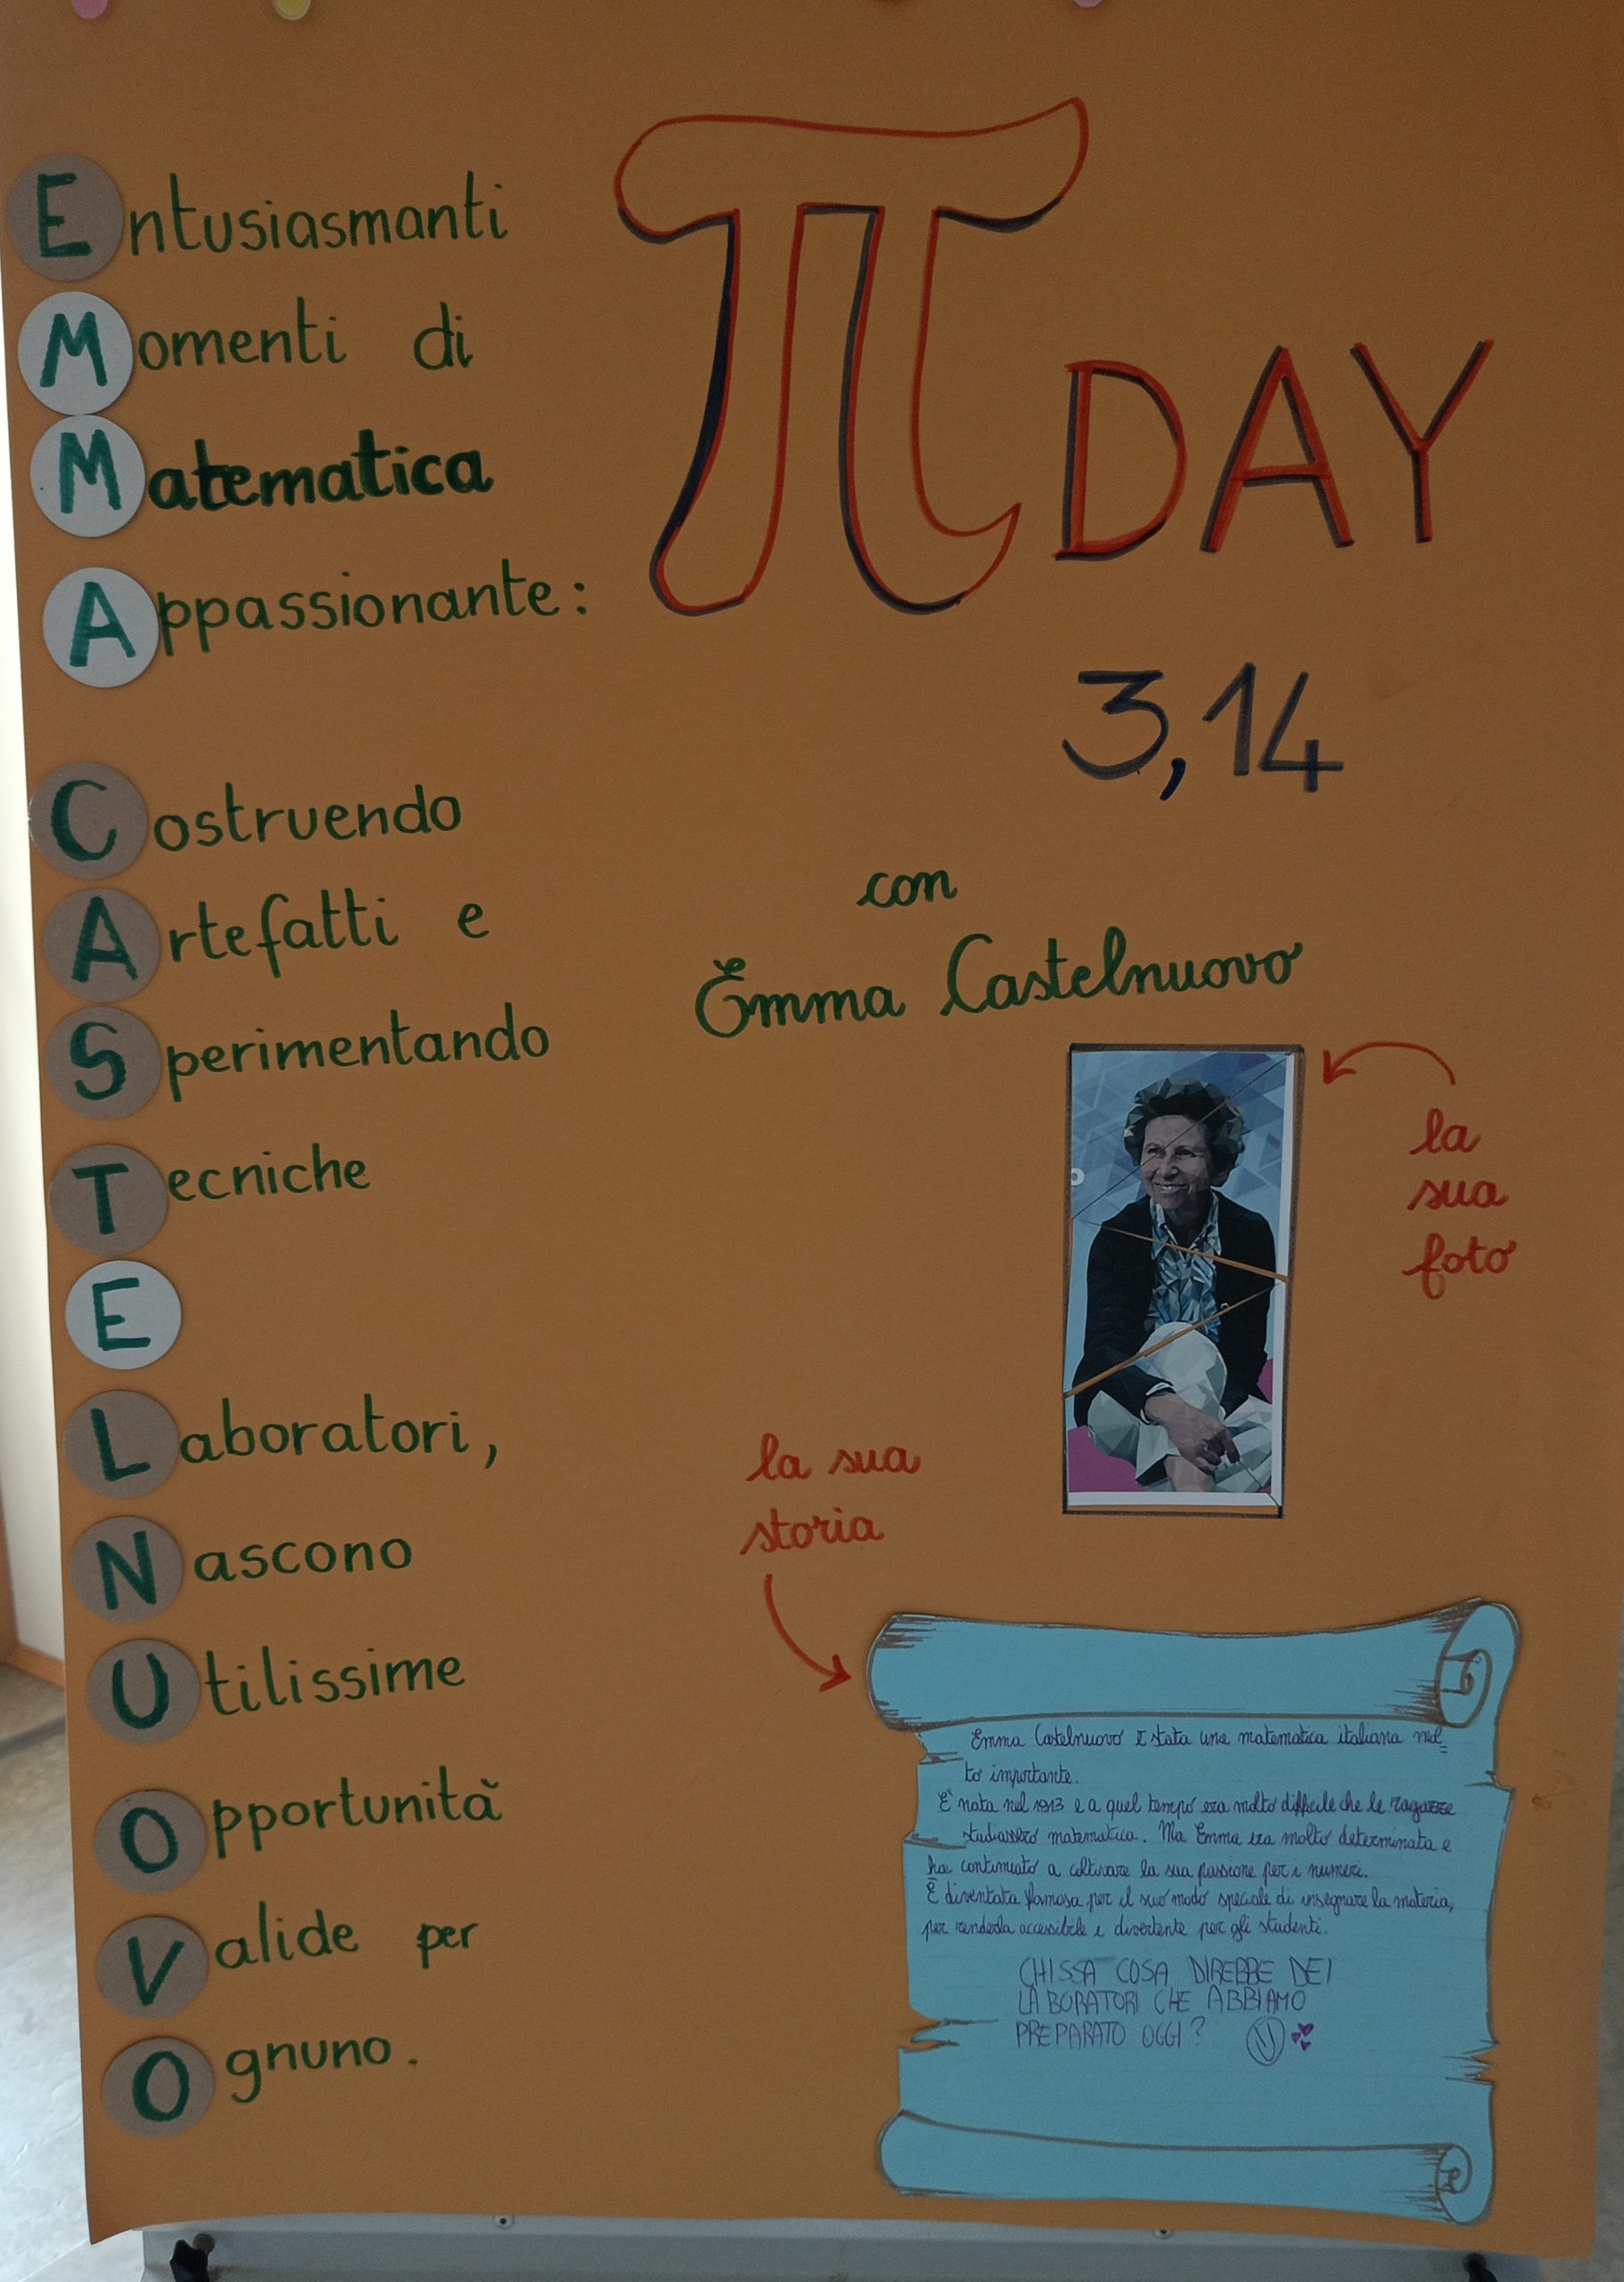 Entusiasmanti
Momenti di
Matematica
Appassionante:
Costruendo
Artefatti e
Sperimentando
Tecniche
E
Laboratori,
Nascono
Utilissime
Opportunità
Valide per
Ognuno.
π DAY
3,14
con
Emma Castelnuovo
la
sua
foto
la sua
storia
Emma Castelnuovo è stata una matematica italiana mol=
to importante.
È nata nel 1913 e a quel tempo era molto difficile che le ragazze
studiassero matematica. Ma Emma era molto determinata e
ha continuato a coltivare la sua passione per i numeri.
È diventata famosa per il suo modo speciale di insegnare la materia,
per renderla accessibile e divertente per gli studenti.
CHISSA COSA DIREBBE DEI
LABORATORI CHE ABBIAMO
PREPARATO OGGI?